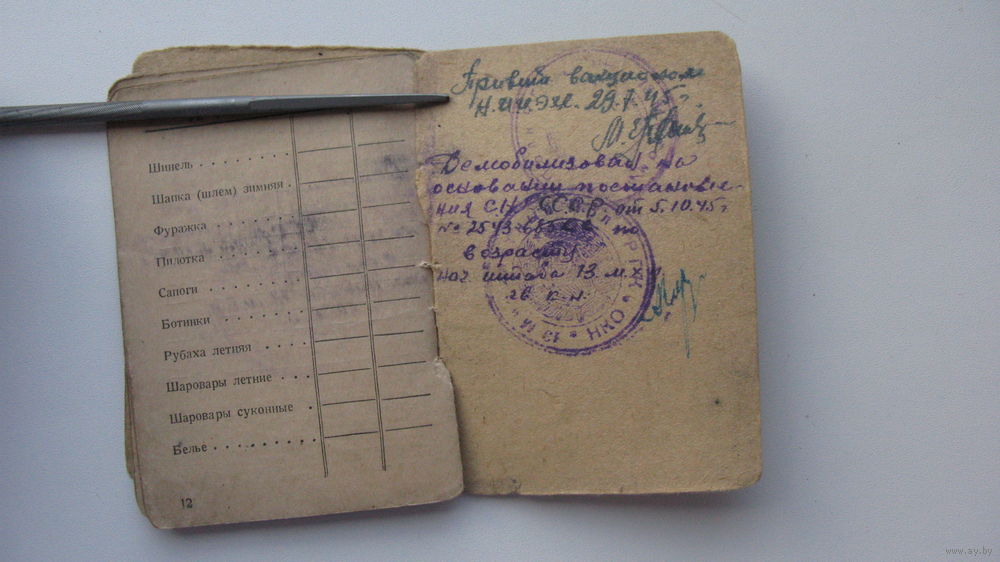 Шинель
Шапка (шлем) зимняя
Фуражка
Пилотка
Сапоги
Ботинки
Рубаха летняя
Шаровары летние
Шаровары суконные
Белье
12
Привит вакциной
НИИЭГ. 29.7.45 г.
Демобилизован на
основании постановле-
ния СНК СССР от 5.10.45 г
№ 2543 по
возрасту
нач штаба 13
НКО * 13
www.ay.by